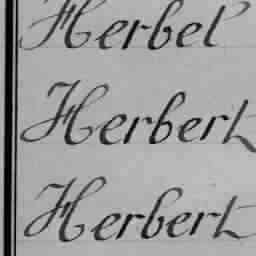 Herbel
Herbert
Herbert